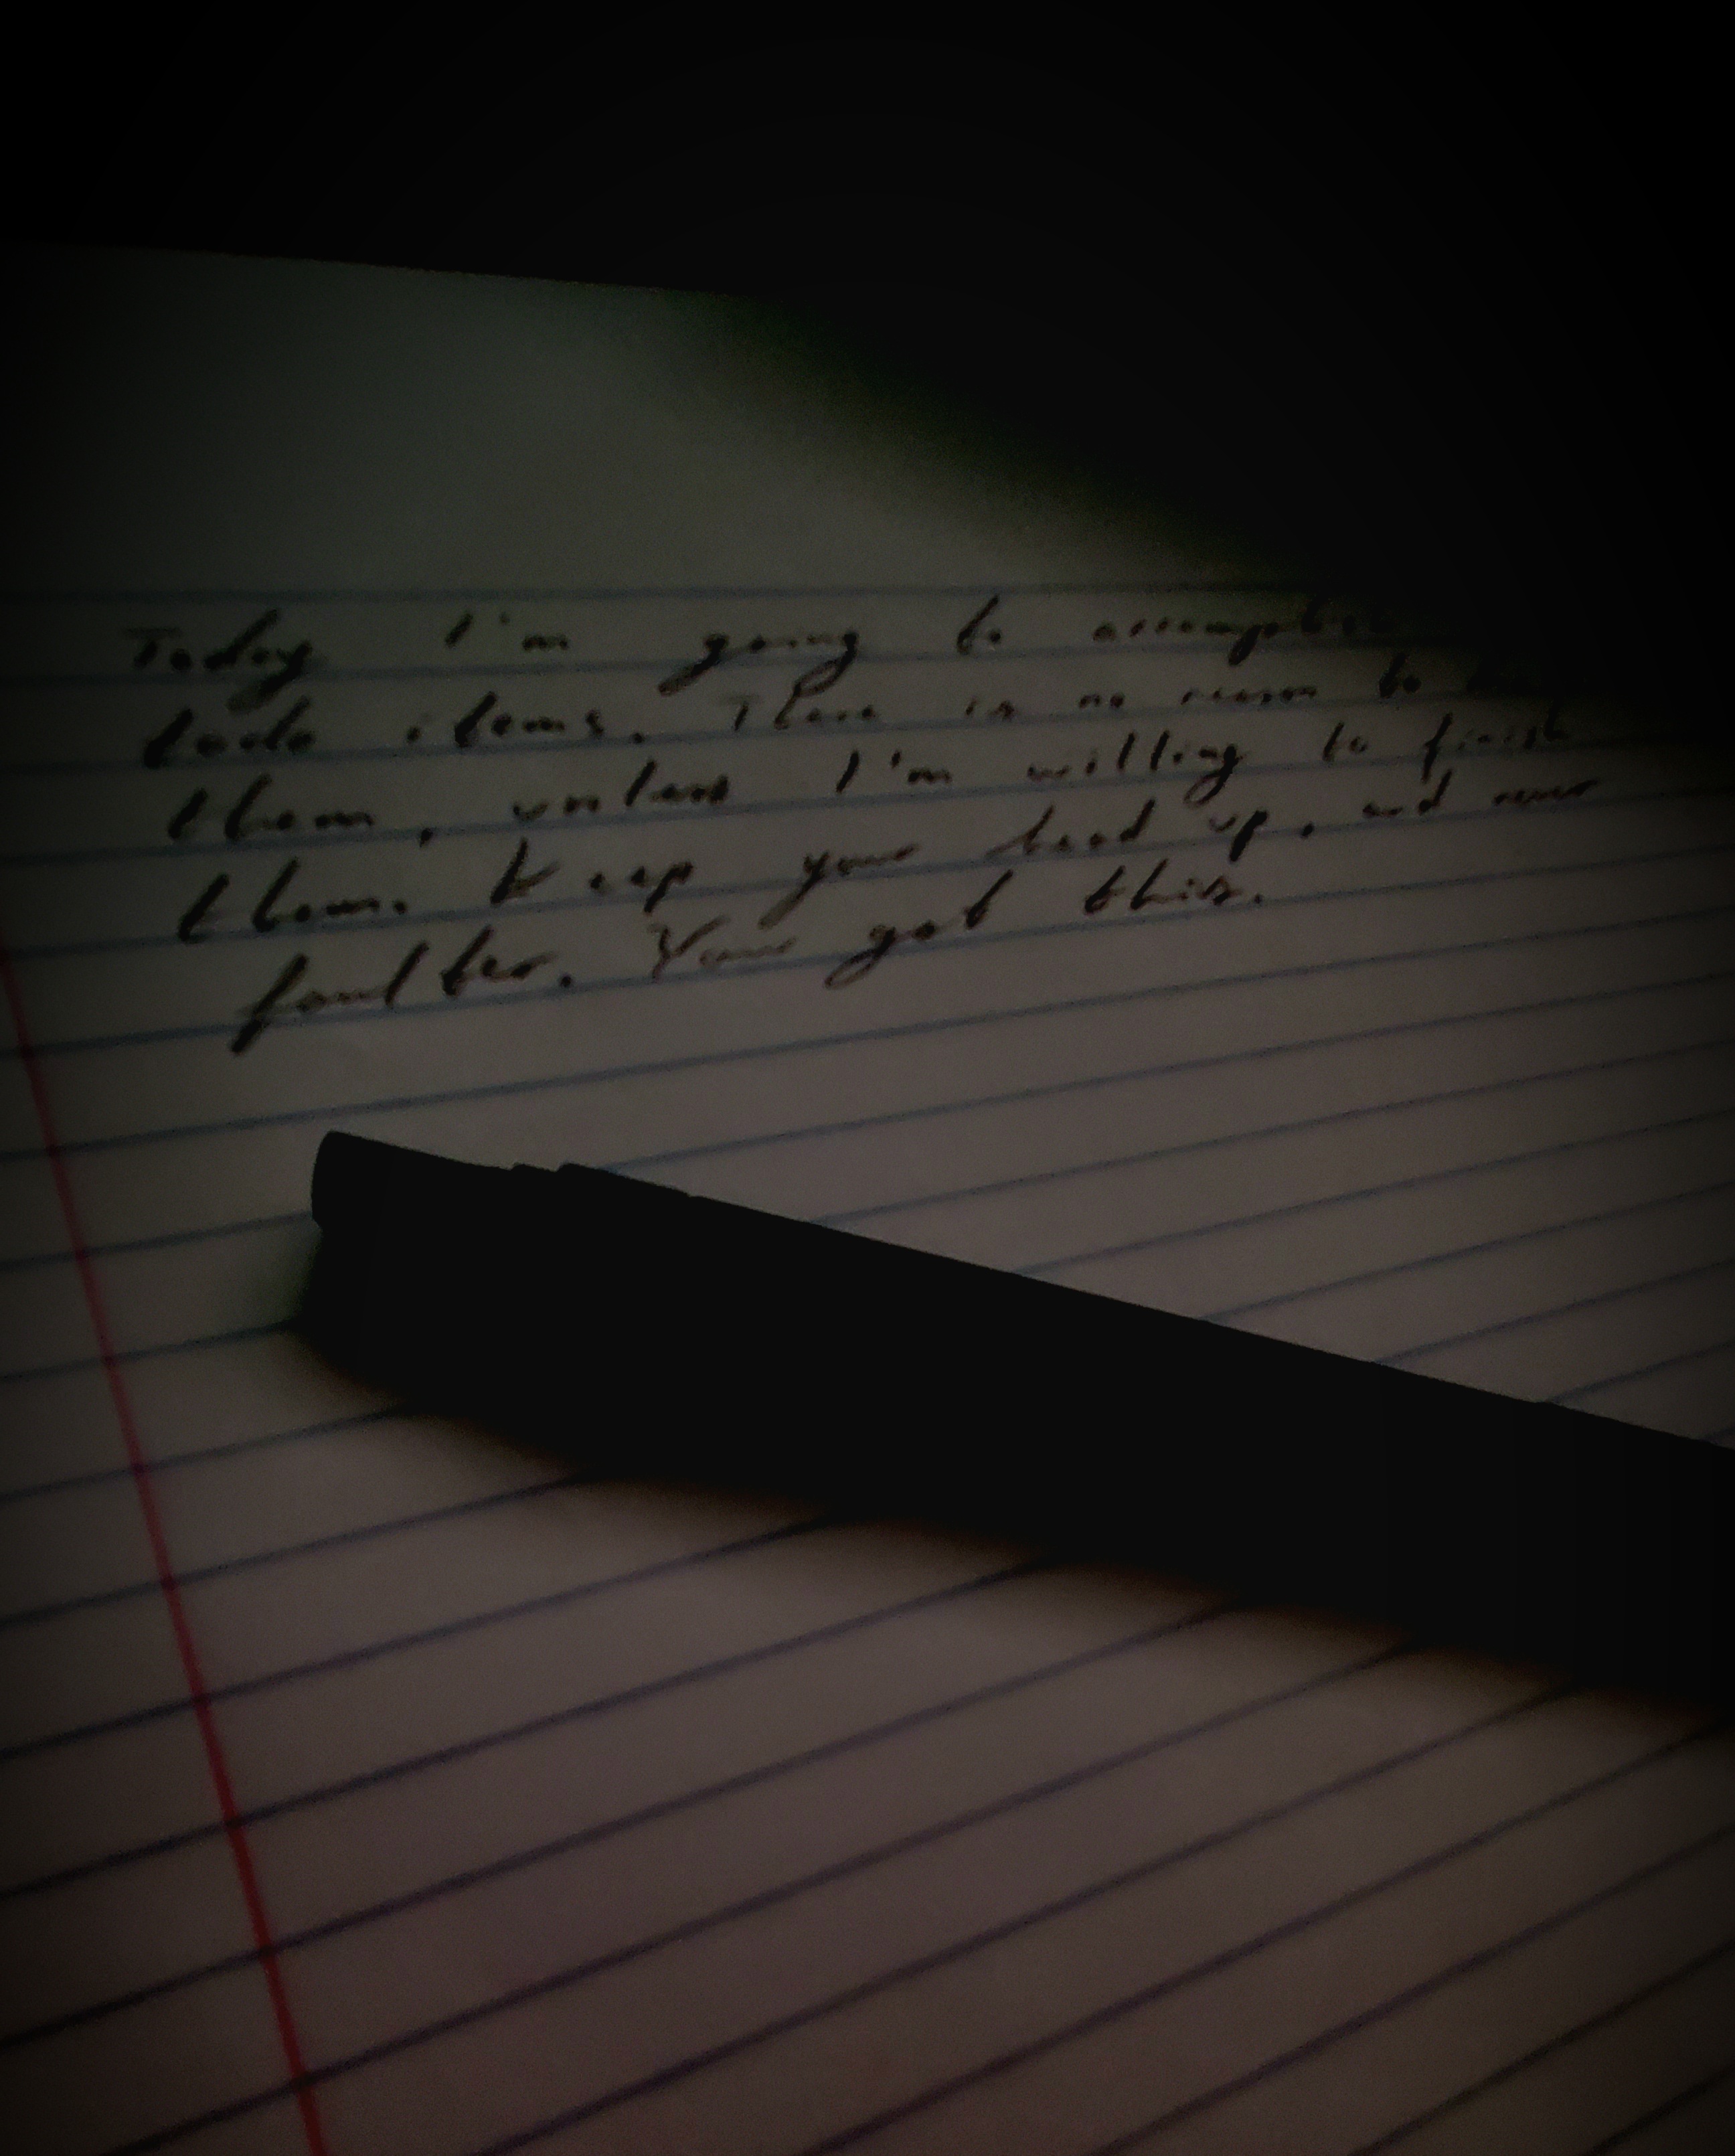 Today I'm going to accomplish
todo items. There is no reason to
them, unless I'm willing to finish
them. Keep your head up, and never
faulter. You got this.